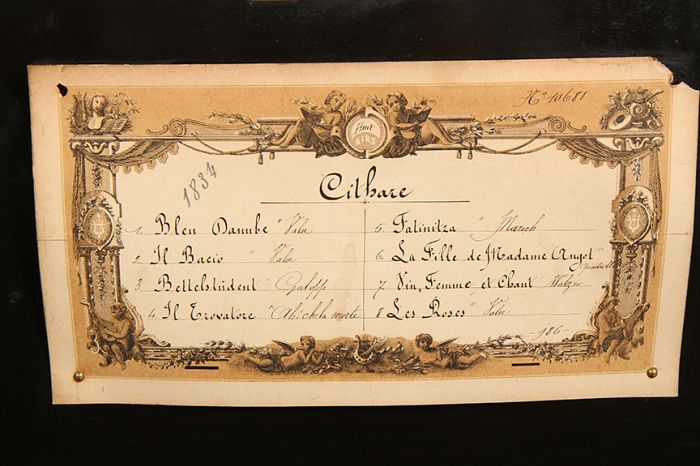 No 10681
Huit
AIRS
1834
Cithare
1. Bleu Danube " Valse
2 Il Bacio " Valse
3 Bettelstüdent " Galopp
4 Il Trovatore " Ah che la morte
5. Fatinitza " Marsch
6. La Fille de Madame Angot
7 Vin, Femme et Chant Walzer
8 Les Roses " Valse
-986-